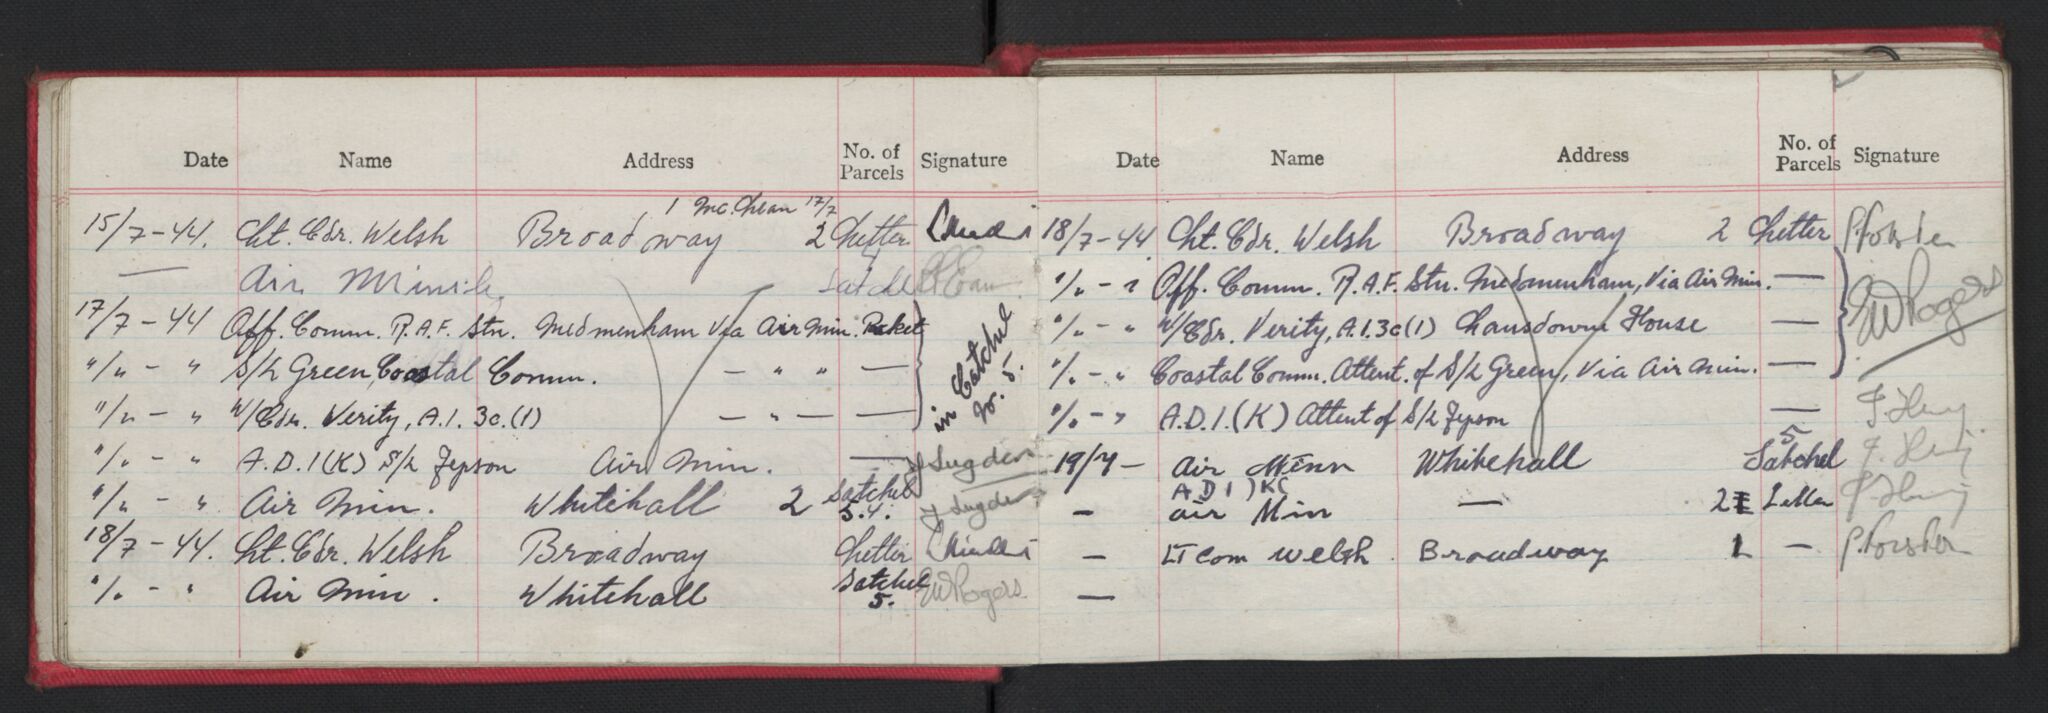 Date Name Address No. of Parcels Signature
1 Mc.Lean 17/7
15/7-44. Lt. Cdr. Welsh Broadway 2 Letter
— Air Minist
17/7-44 Off. Comm. R.A.F. Stn. Medmenham Via Air Min. Packet
"/" - " S/L Green, Coastal Comm. — " " —
in Satchel Nr. 5.
"/" - " W/Cdr. Verity, A.I. 3c.(1) — " — —
"/" - " A.D.I(K) S/L Jepson Air Min. — Sugden
"/" - " Air Min. Whitehall 2 Satchel 5.4. Sugden
18/7-44. Lt. Cdr. Welsh Broadway Letter
"/" - " Air Min. Whitehall Satchel 5. EW Rogers
Date Name Address No. of Parcels Signature
18/7-44 Lt. Cdr. Welsh Broadway 2 Letter P. Forster
"/" - " Off. Comm. R.A.F. Stn. Medmenham, Via Air Min. —
"/" - " W/Cdr. Verity, A.I.3c(1) Lansdowne House — EW Rogers
"/" - " Coastal Comm. Attent. of S/L Green, Via Air Min. —
"/" - " A.D.I.(K) Attent of S/L Jepson —
19/7 - Air Minn Whitehall 5 Satchel
A D I ) K(
— Air Min — 2 Letter
— LT Com Welsh Broadway 1 — P. Forster
—